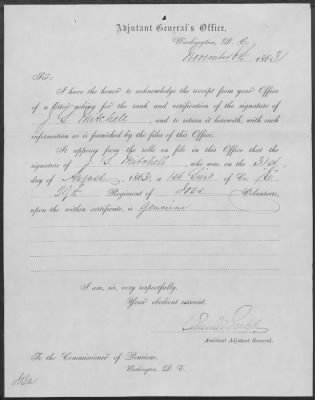 Adjutant General's Office,
Washington, D. C.
November 6th, 1863
Sir:
I have the honor to acknowledge the receipt from your Office
of a letter asking for the rank and verification of the signature of
J. S. Mitchell, and to return it herewith, with such
information as is furnished by the files of this Office.
It appears from the rolls on file in this Office that the
signature of J. S. Mitchell, who was, on the 31st
day of August, 1863, a 1st Lieut of Co. "E"
Regiment of Iowa Volunteers,
upon the within certificate, is genuine
I am, sir, very respectfully,
Your obedient servant,
Assistant Adjutant General.
To the Commissioner of Pensions,
Washington, D. C.